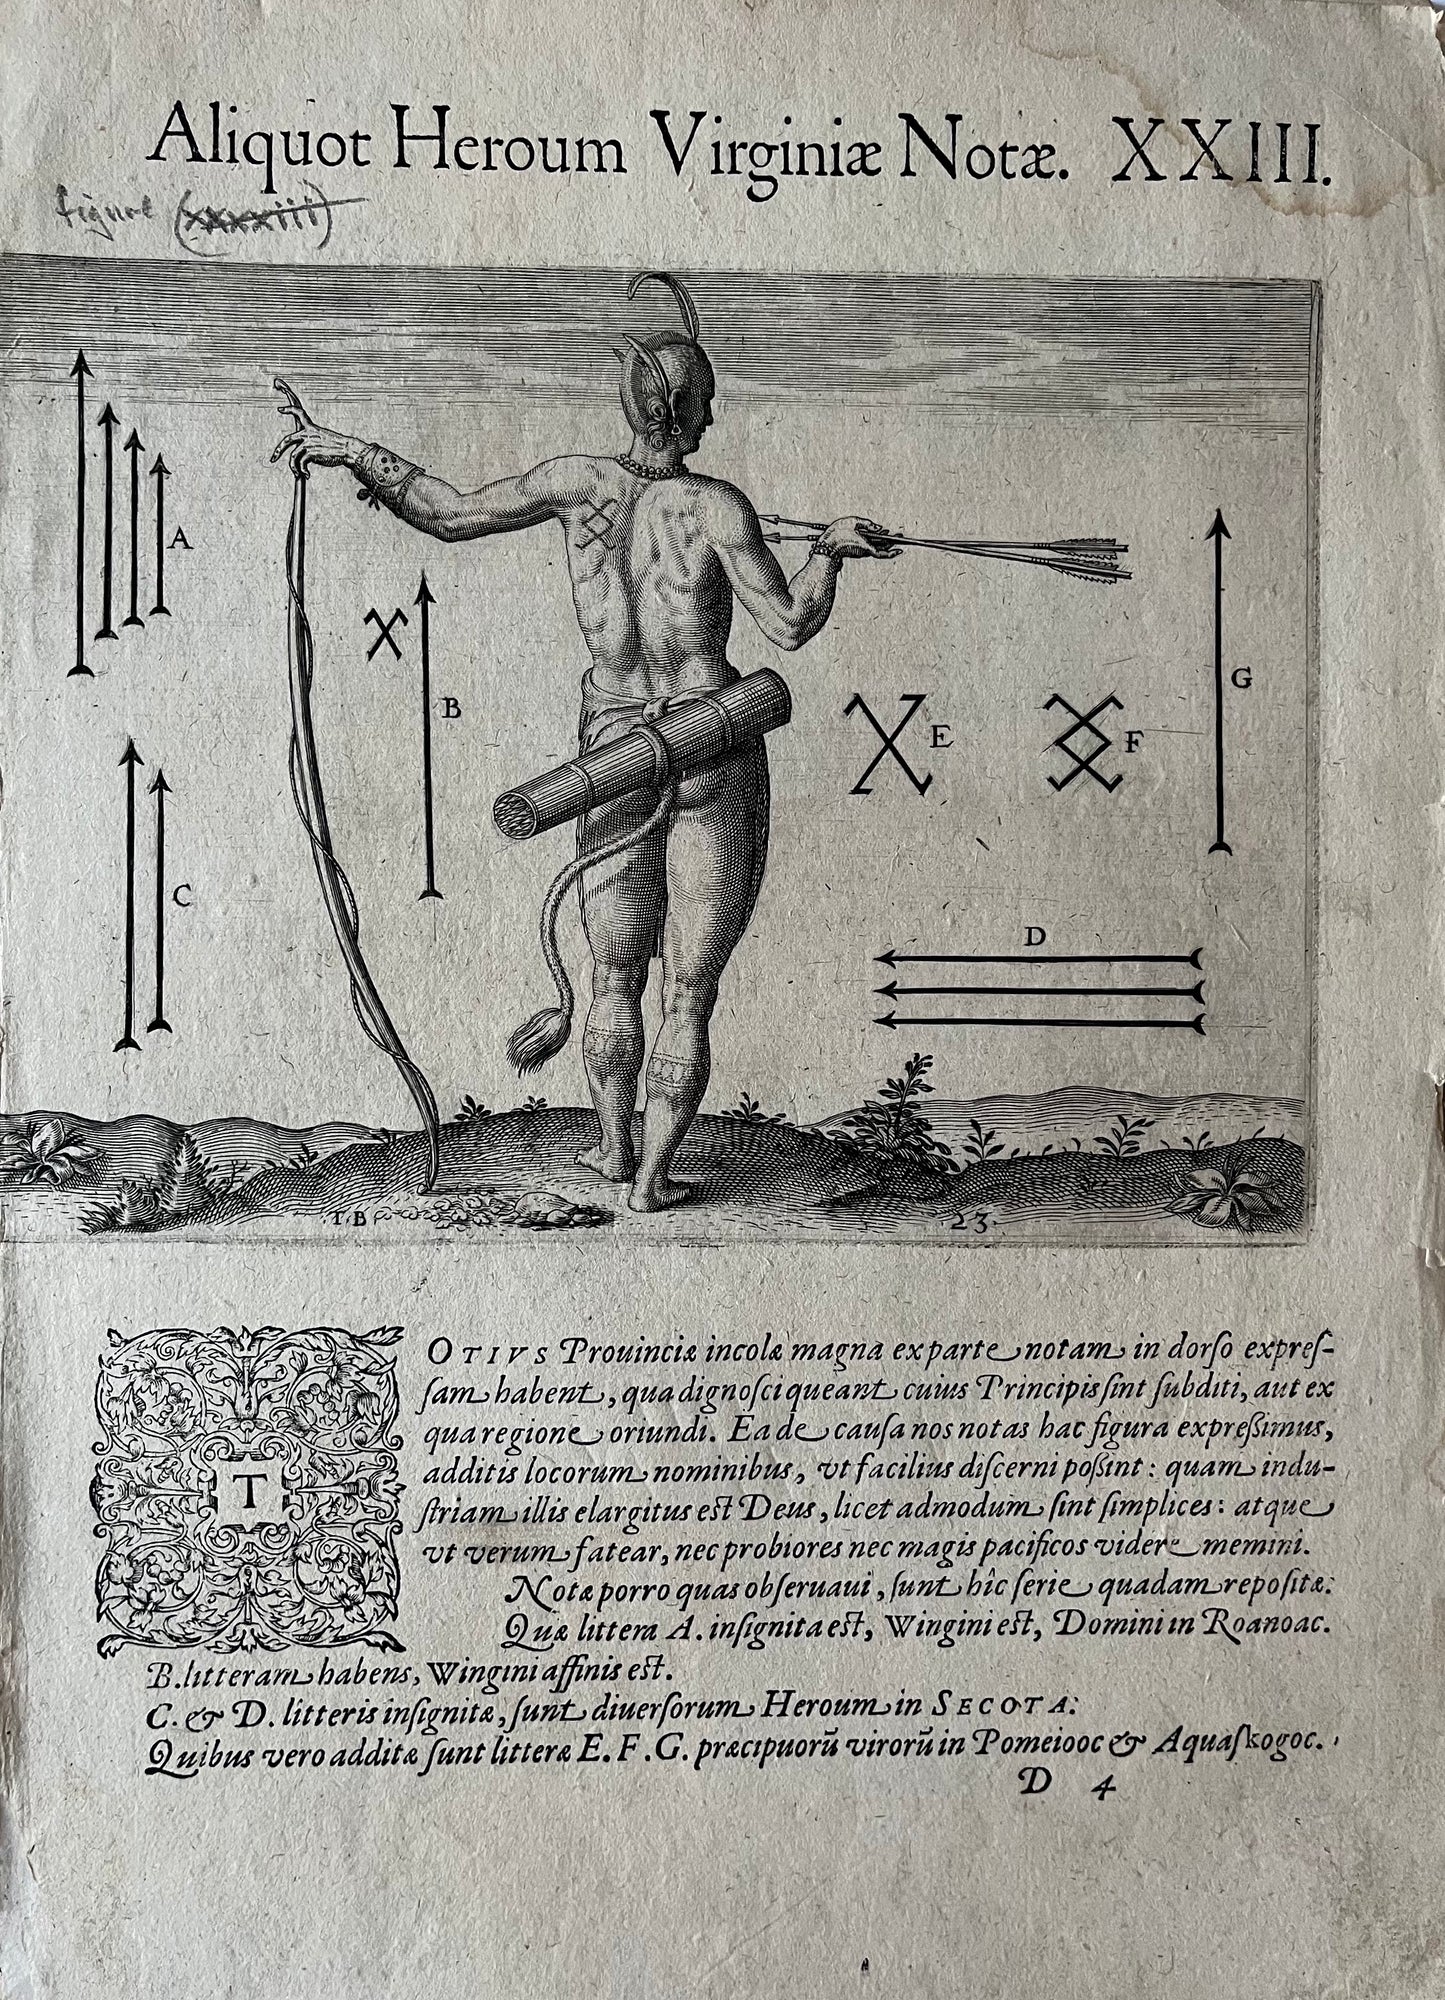 Aliquot Heroum Virginiæ Notæ. XXIII.
figure (xxxxiii)
A
B
C
D
E
F
G
T.B
23.
T
OTIVS Prouinciæ incolæ magna exparte notam in dorso expres-
sam habent, qua dignosci queant cuius Principis sint subditi, aut ex
qua regione oriundi. Ea de causa nos notas hac figura expreßimus,
additis locorum nominibus, vt facilius discerni poßint: quam indu-
striam illis elargitus est Deus, licet admodum sint simplices: atque
vt verum fatear, nec probiores nec magis pacificos videre memini.
Notæ porro quas obseruaui, sunt hîc serie quadam repositæ:
Quæ littera A. insignita est, Wingini est, Domini in Roanoac.
B. litteram habens, Wingini affinis est.
C. & D. litteris insignitæ, sunt diuersorum Heroum in SECOTA:
Quibus vero additæ sunt litteræ E. F. G. præcipuorū virorū in Pomeiooc & Aquaskogoc.
D 4